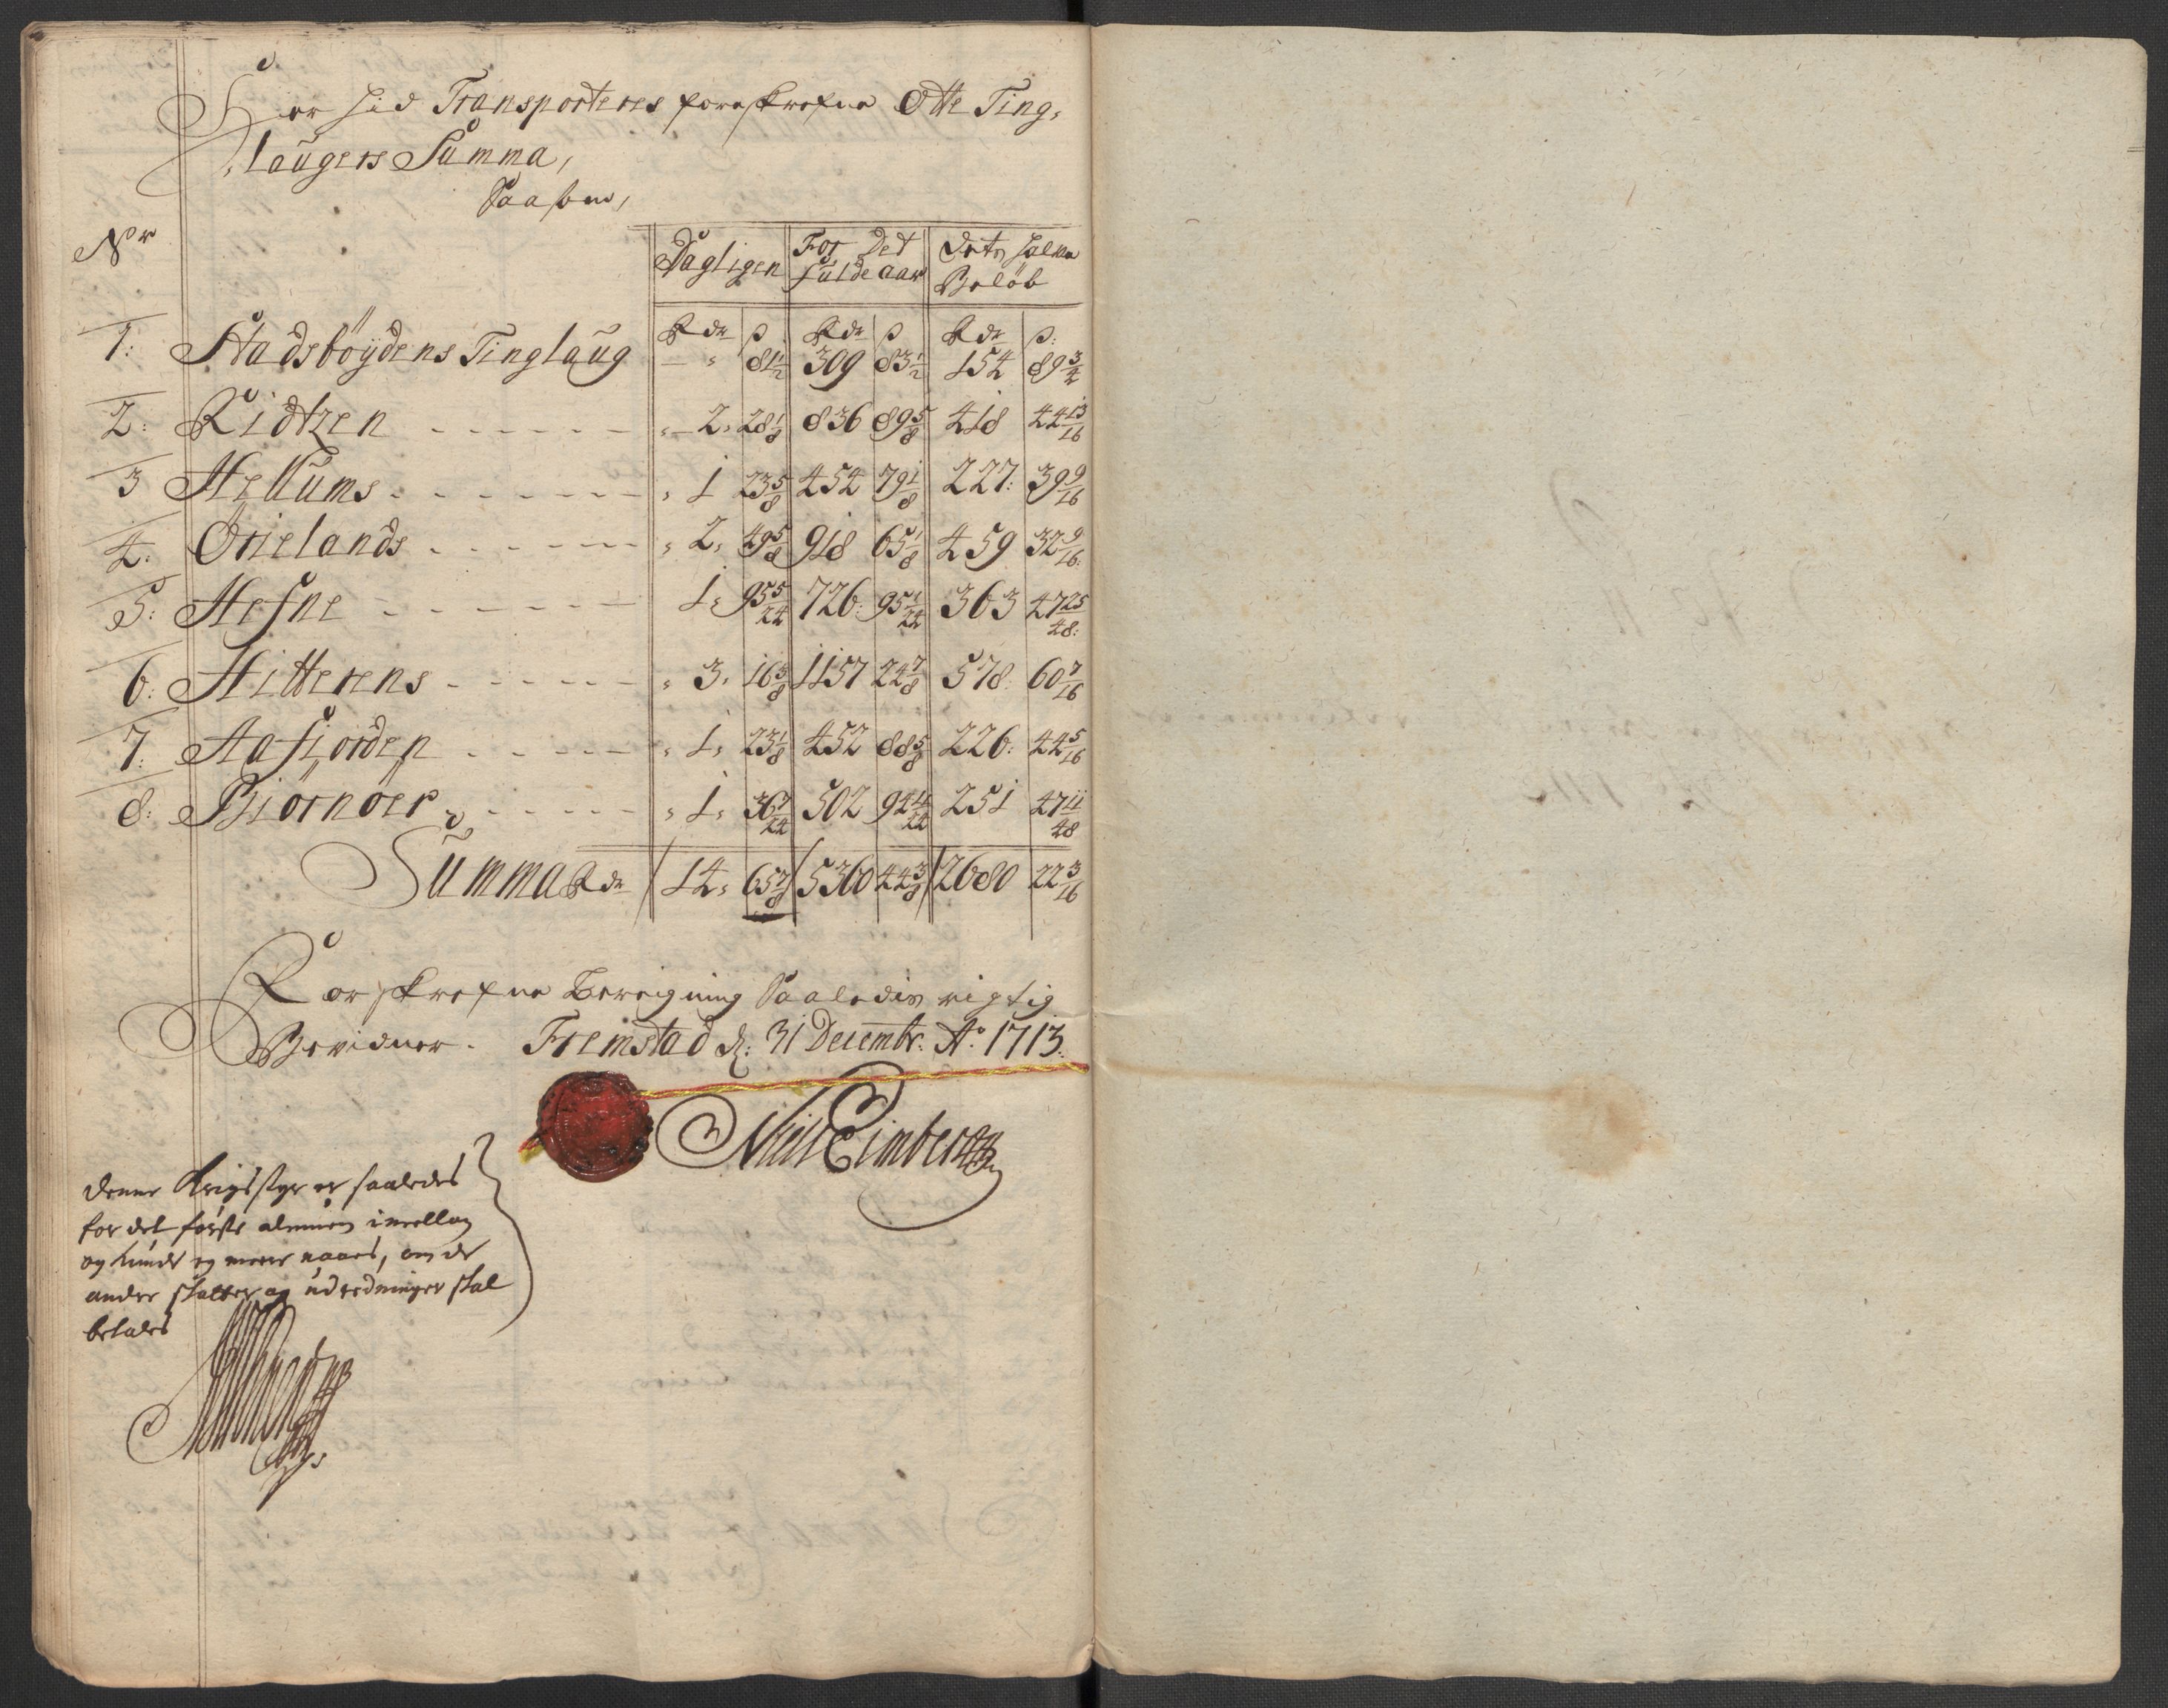 Her hid Transporteres foreskrefne Otte Ting,
laugers Summa,
Saasom,
Nr
Dagligen | For Det fulde aar | Dets halve Beløb
Rdr ß | Rdr ß | Rdr ß:
1: Stadsböydens Tinglaug — " 81½ | 309 83½ | 154 89¾
2: Ridtzen - - - - - - 2, 28 1/8 | 836 89 5/8 | 418 44 13/16
3 Hellums - - - - - - 1 23 5/8 | 454 79 1/8 | 227: 39 9/16
4: Örielands - - - - - - 2, 49 5/8 | 918 65 1/8 | 459 32 9/16:
5: Hefne - - - - - - 1, 95 5/24 | 726: 95 1/24 | 363 47 25/48:
6: Hitterens - - - - - 3, 16 3/8 | 1157 24 7/8 | 578: 60 7/16
7: Aafiorden - - - - - 1, 23 1/8 | 452 88 5/8 | 226: 44 5/16
8: Biörnöer - - - - - 1, 36 7/24 | 502 94 11/24 | 251 47 11/48
Summa Rdr 14, 65 7/8 | 5360 44 3/8 | 2680 22 3/16
Forskrefne Beregning Saaledis rigtig
Bevidner. Fremstad d: 31 Decembr: Ao. 1713:
Niels Eimbersen
denne Krigsstyr er saaledes
for det første
og kunde ey mere naaes, om de
andre skatter og udredninger skal
betales